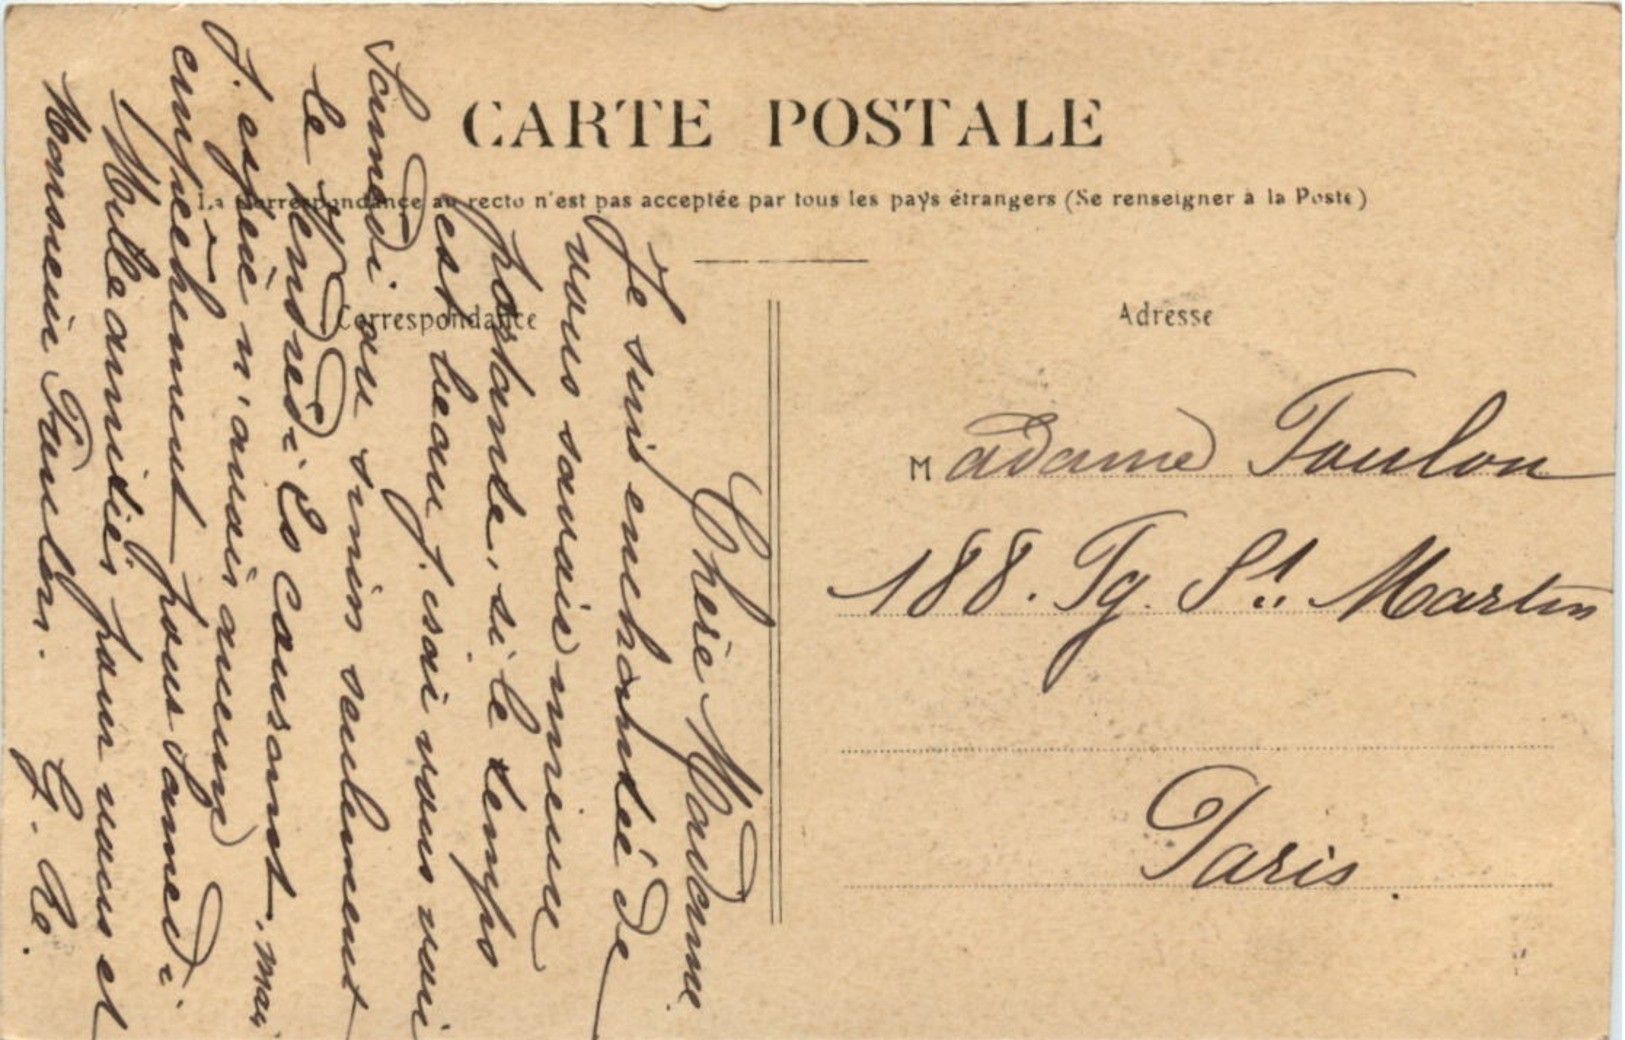 CARTE POSTALE
La Correspondance au recto n'est pas acceptée par tous les pays étrangers (Se renseigner à la Poste)
Correspondance
Chère Madame
Je suis enchantée de
vous savoir mieux
portante, si le temps
est beau j. irai vous voir
Samedi ou sinon seulement
le Vendredi en causant, mai
j. espère n'avoir aucun
empêchement pour Samedi
Mille amitiés pour vous et
Monsieur Foulon.
G. Le.
Adresse
Madame Foulon
188. Fg. St. Martin
Paris.